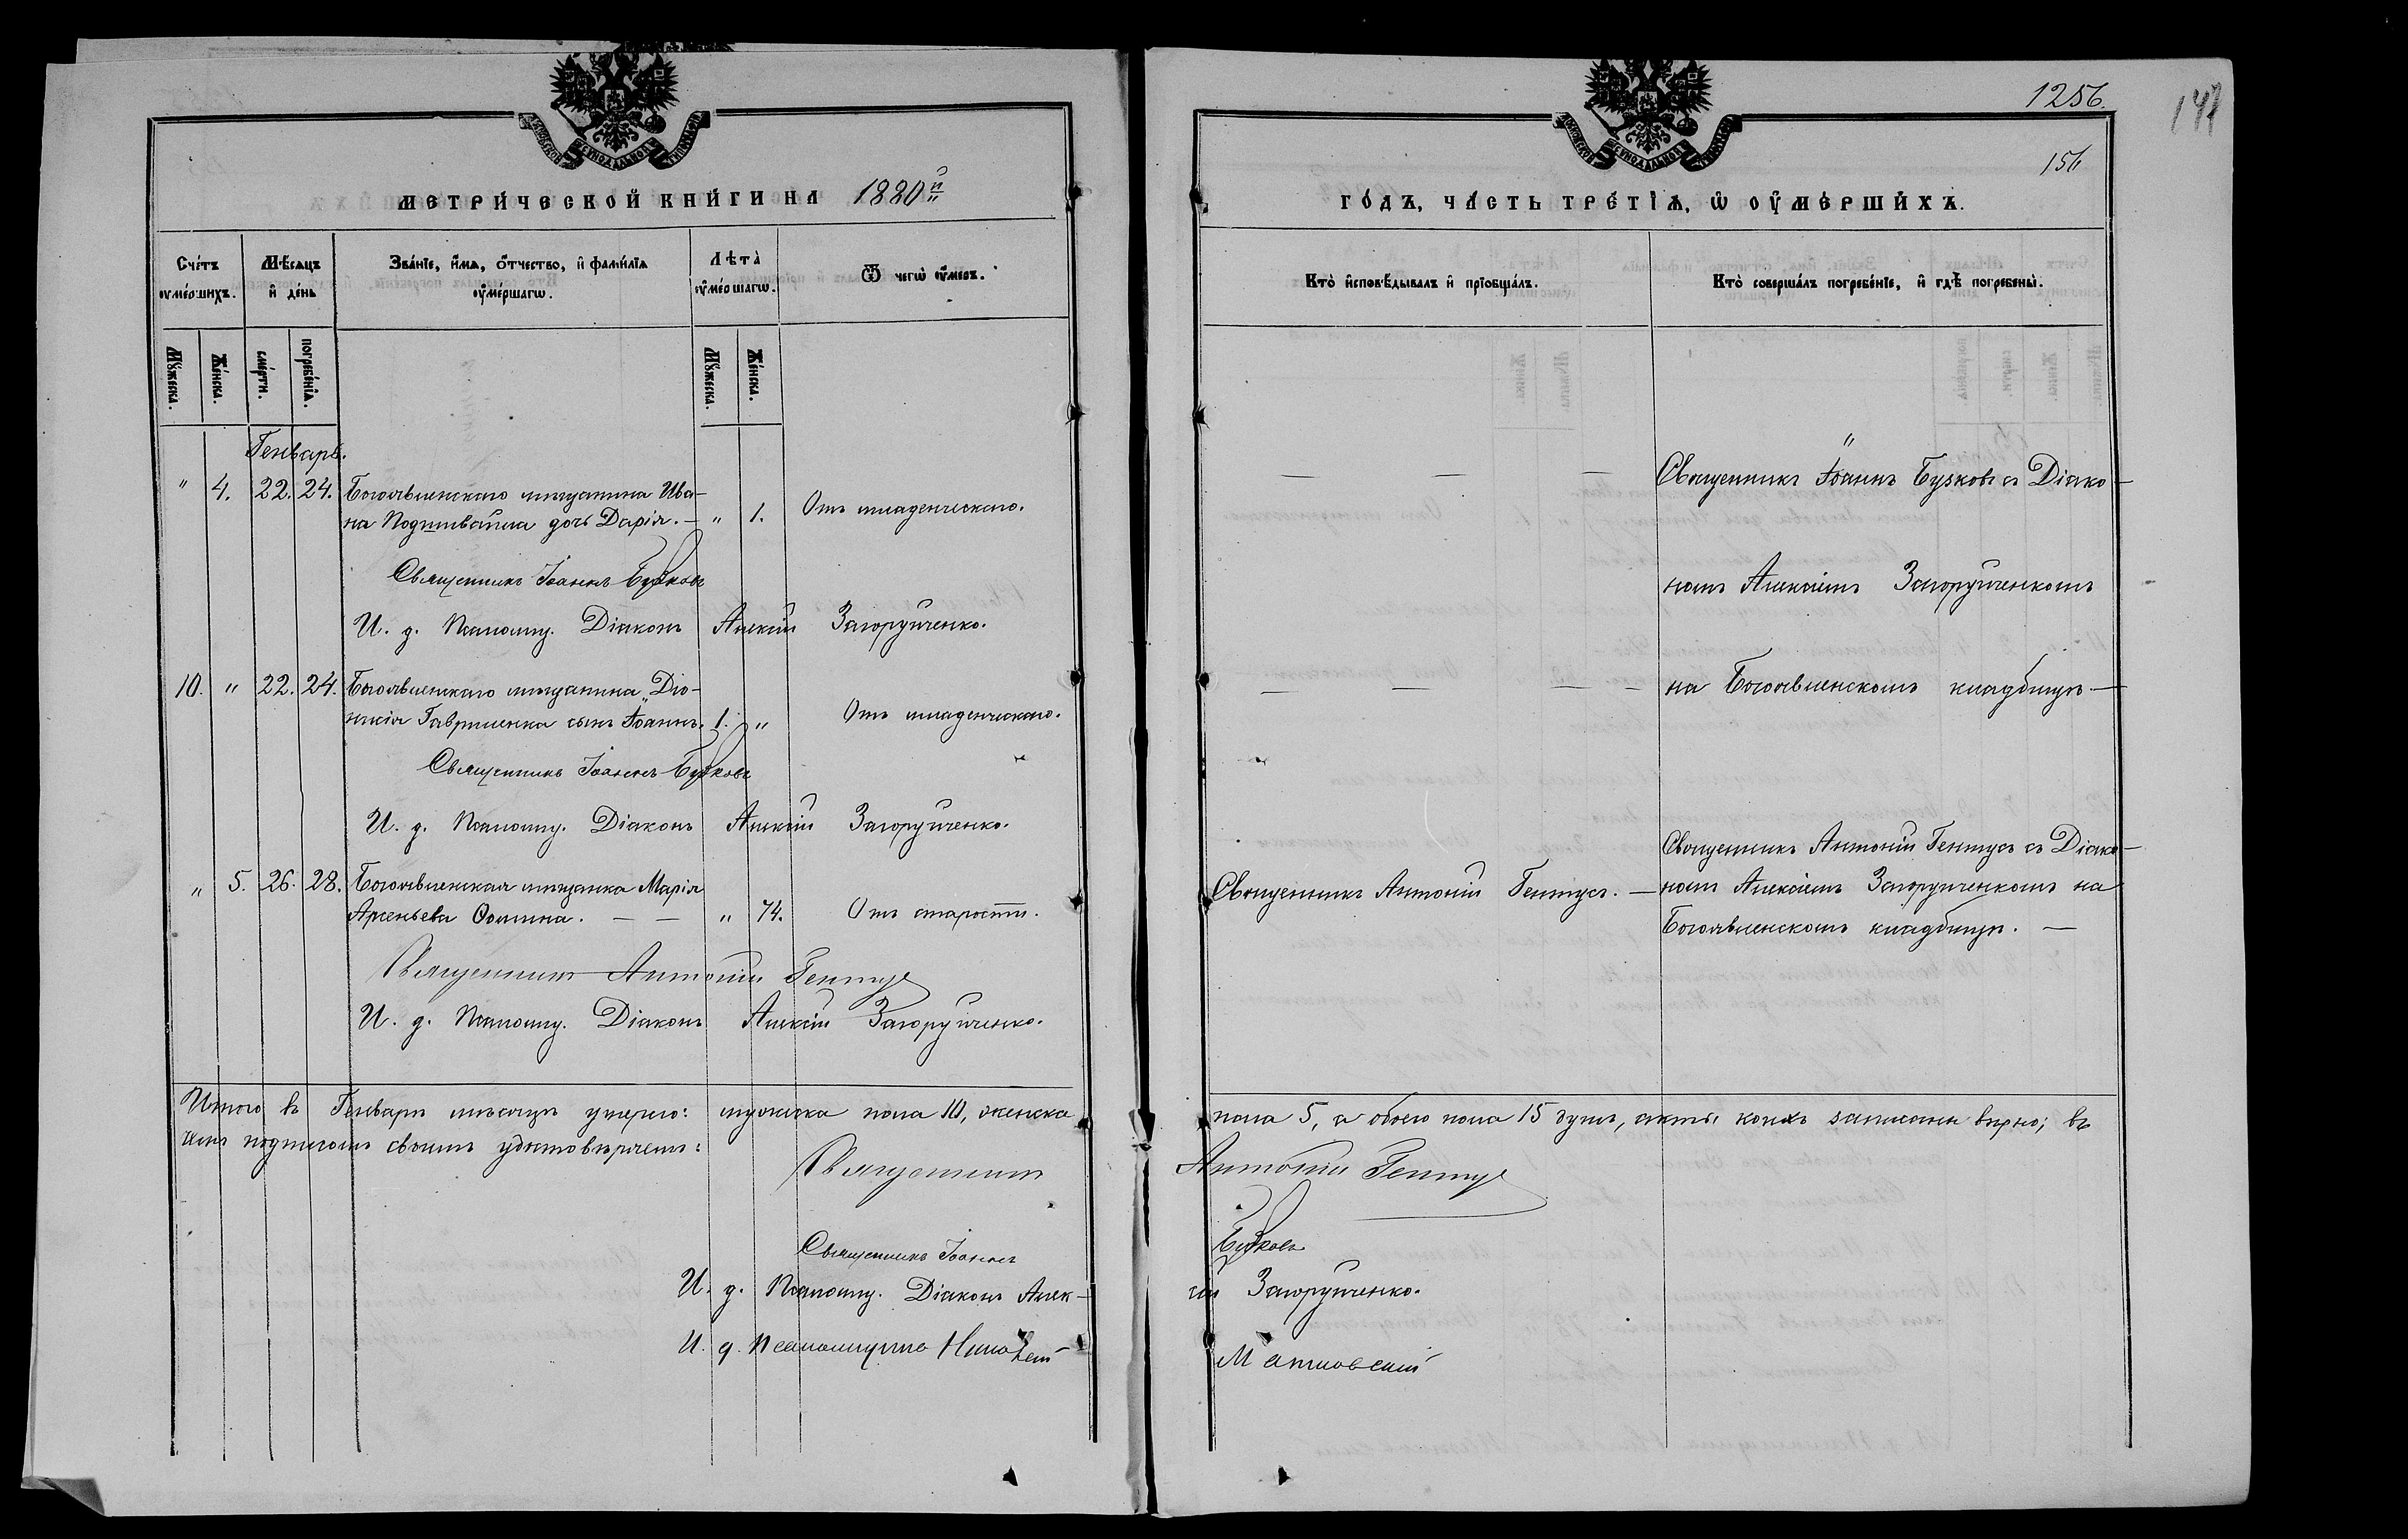 1256.
147
156
МЕТРИ́ЧЕСКОЙ КНИ́ГИ НА 1880й
ГО́ДЪ, ЧА́СТЬ ТРЕ́ТІѦ, Ѡ ОУ҆МЕ́РШИХЪ.
Сче́тъ оумершихъ.
Мѣ́сяцъ и҆ де́нь
Зва́нїе, и҆́мѧ, ѻ҆́тчество, и҆ фамилїѧ оу҆ме́ршагѡ.
Лѣта̀ оу҆ме́ршагѡ.
Ѿ чегѡ̀ оу҆́меръ.
Кто̀ и҆сповѣ́дывалъ и҆ прїобща́лъ.
Кто̀ соверша́лъ погребе́нїе, и҆ гдѣ̀ погребены̀.
Мꙋ́жеска.
Же́нска.
сме́рти.
погребе́нїѧ.
Мꙋ́жеска.
Же́нска.
Генварь.
" 4. 22. 24. Богоявленскаго мѣщанина Ива-
на Подшивайла дочь Дарія. — " 1. Отъ младенческаго.
Священникъ Іоаннъ Бузковъ съ Діако-
номъ Алексіемъ Загоруйченкомъ
на Богоявленскомъ кладбищѣ. —
Священникъ Іоаннъ Бузковъ
И. д. Псаломщ. Діаконъ Алексій Загоруйченко.
10. " 22. 24. Богоявленскаго мѣщанина Діо-
нисія Гавриленка сынъ Іоаннъ. 1. " Отъ младенческаго.
Священникъ Іоаннъ Бузковъ
И. д. Псаломщ. Діаконъ Алексій Загоруйченко.
" 5. 26. 28. Богоявленская мѣщанка Марія
Арсеньева Сомина. — — " 74. Отъ старости.
Священникъ Антоній Гентусъ. —
Священникъ Антоній Гентусъ съ Діако-
номъ Алексіемъ Загоруйченкомъ на
Богоявленскомъ кладбищѣ. —
Священникъ Антоній Гентусъ
И. д. Псаломщ. Діаконъ Алексій Загоруйченко.
Итого въ Генварѣ мѣсяцѣ умерло: мужеска пола 10, женска пола 5, а обоего пола 15 душъ, акты коихъ записаны вѣрно; въ
чемъ подписомъ своимъ удостовѣряемъ:
Священникъ Антоній Гентусъ
Священникъ Іоаннъ Бузковъ
И. д. Псаломщ. Діаконъ Алек-сій Загоруйченко.
И. д. Псаломщика